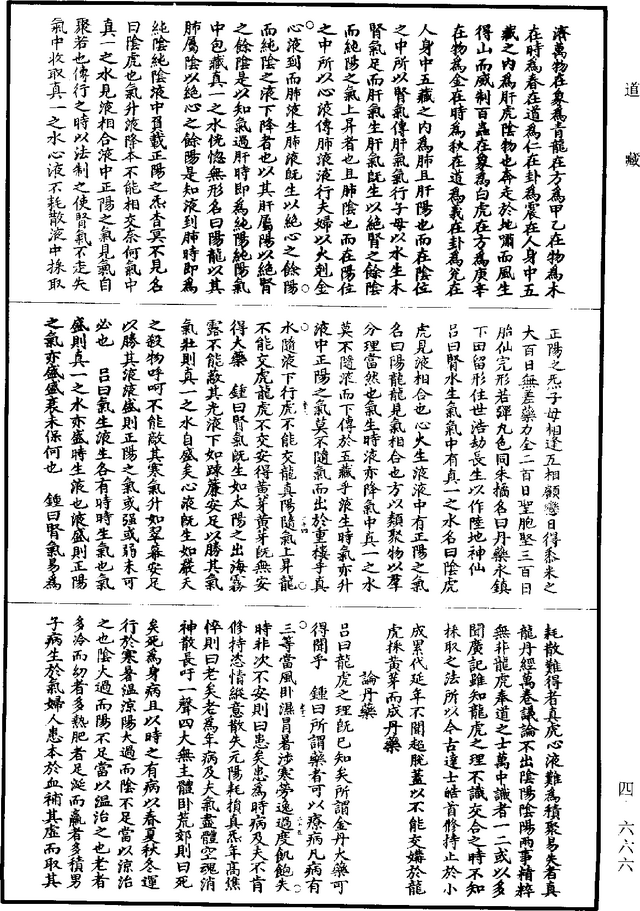 道藏
濟萬物在象為青龍在方為甲乙在物為木
在時為春在道為仁在卦為震在人身中五
藏之內為肝虎陰物也奔走於地嘯而風生
得山而威制百蟲在象為白虎在方為庚辛
在物為金在時為秋在道為義在卦為兌在
人身中五藏之內為肺且肝陽也而在陰位
之中所以腎氣傳肝氣氣行子母以水生木
腎氣足而肝氣生肝氣既生以絕腎之餘陰
而純陽之氣上昇者也且肺陰也而在陽位
之中所以心液傳肺液液行夫婦以火剋金
心液到而肺液生肺液既生以絕心之餘陽
而純陰之液下降者也以其肝屬陽以絕腎
之餘陰是以知氣過肝時即為純陽純陽氣
中包藏真一之水恍惚無形名曰陽龍以其
肺屬陰以絕心之餘陽是知液到肺時即為
純陰純陰液中負載正陽之炁杳冥不見名
曰陰虎也氣升液降本不能相交奈何氣中
真一之水見液相合液中正陽之氣見氣自
聚若也傳行之時以法制之使腎氣不走失
氣中收取真一之水心液不耗散液中採取
正陽之炁子母相逢互相顧戀日得黍米之
大百日無差藥力全二百日聖胞堅三百日
胎仙完形若彈丸色同朱橘名曰丹藥永鎮
下田留形住世浩劫長生以作陸地神仙
呂曰腎水生氣氣中有真一之水名曰陰虎
虎見液相合也心火生液液中有正陽之氣
名曰陽龍龍見氣相合也方以類聚物以羣
分理當然也氣生時液亦降氣中真一之水
莫不隨液而下傳於五藏乎液生時氣亦升
液中正陽之氣莫不隨氣而出於重樓乎真
水隨液下行虎不能交龍真陽隨氣上昇龍
不能交虎龍虎不交安得黃芽黃芽既無安
得大藥　鍾曰腎氣既生如太陽之出海霧
露不能敵其光液下如踈簾安足以勝其氣
氣壯則真一之水自盛矣心液既生如嚴天
之殺物呼呵不能敵其寒氣升如翠幕安足
以勝其液液盛則正陽之氣或强或弱未可
必也　呂曰氣生液生各有時時生氣也氣
盛則真一之水亦盛時生液也液盛則正陽
之氣亦盛盛衰未保何也　鍾曰腎氣易為
耗散難得者真虎心液難為積聚易失者真
龍丹經萬卷議論不出陰陽陰陽兩事精粹
無非龍虎奉道之士萬中識者一二或以多
聞廣記雖知龍虎之理不識交合之時不知
採取之法所以今古達士皓首修持止於小
成累代延年不聞超脫蓋以不能交媾於龍
虎採黃芽而成丹藥
論丹藥
呂曰龍虎之理既已知矣所謂金丹大藥可
得聞乎　鍾曰所謂藥者可以療病凡病有
三等當風卧濕冒暑涉寒勞逸過度飢飽失
時非次不安則曰患矣患為時病及夫不肯
修持恣情縱意散失元陽耗損真炁年高憔
悴則曰老矣老為年病及夫氣盡體空魂消
神散長吁一聲四大無主體卧荒郊則曰死
矣死為身病且以時之有病以春夏秋冬運
行於寒暑溫涼陽大過而陰不足當以涼治
之也陰大過而陽不足當以溫治之也老者
多冷而幼者多熱肥者足涎而羸者多積男
子病生於氣婦人患本於血補其虛而取其
四・六六六